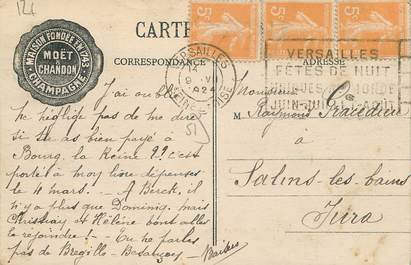 124
CARTE
MAISON FONDÉE EN 1743
MOËT & CHANDON
CHAMPAGNE
CORRESPONDANCE
ADRESSE
5c
5c
5c
VERSAILLES
SEINE-ET-OISE
VERSAILLES
FÊTES DE NUIT
UNIQUES AU MONDE
JUIN-JUILLET-AOUT
J'ai oublié
Ne néglige pas de me dire
si tu as bien payé à
Bourg la Reine ?? c'est
porté à mon livre dépenses
le 4 mars. — A Berck, il
n'y a plus que Dominiq. mais
et Hélène vont aller
le rejoindre! — Tu me parles
pas de Bregille-Besançon
Monsieur
M Raymond
à
Salins-les-bains
Jura